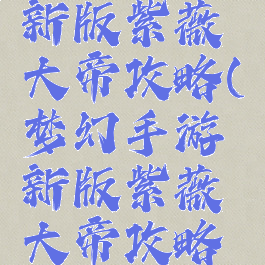 新版紫薇
大帝攻略(
梦幻手游
新版紫薇
大帝攻略